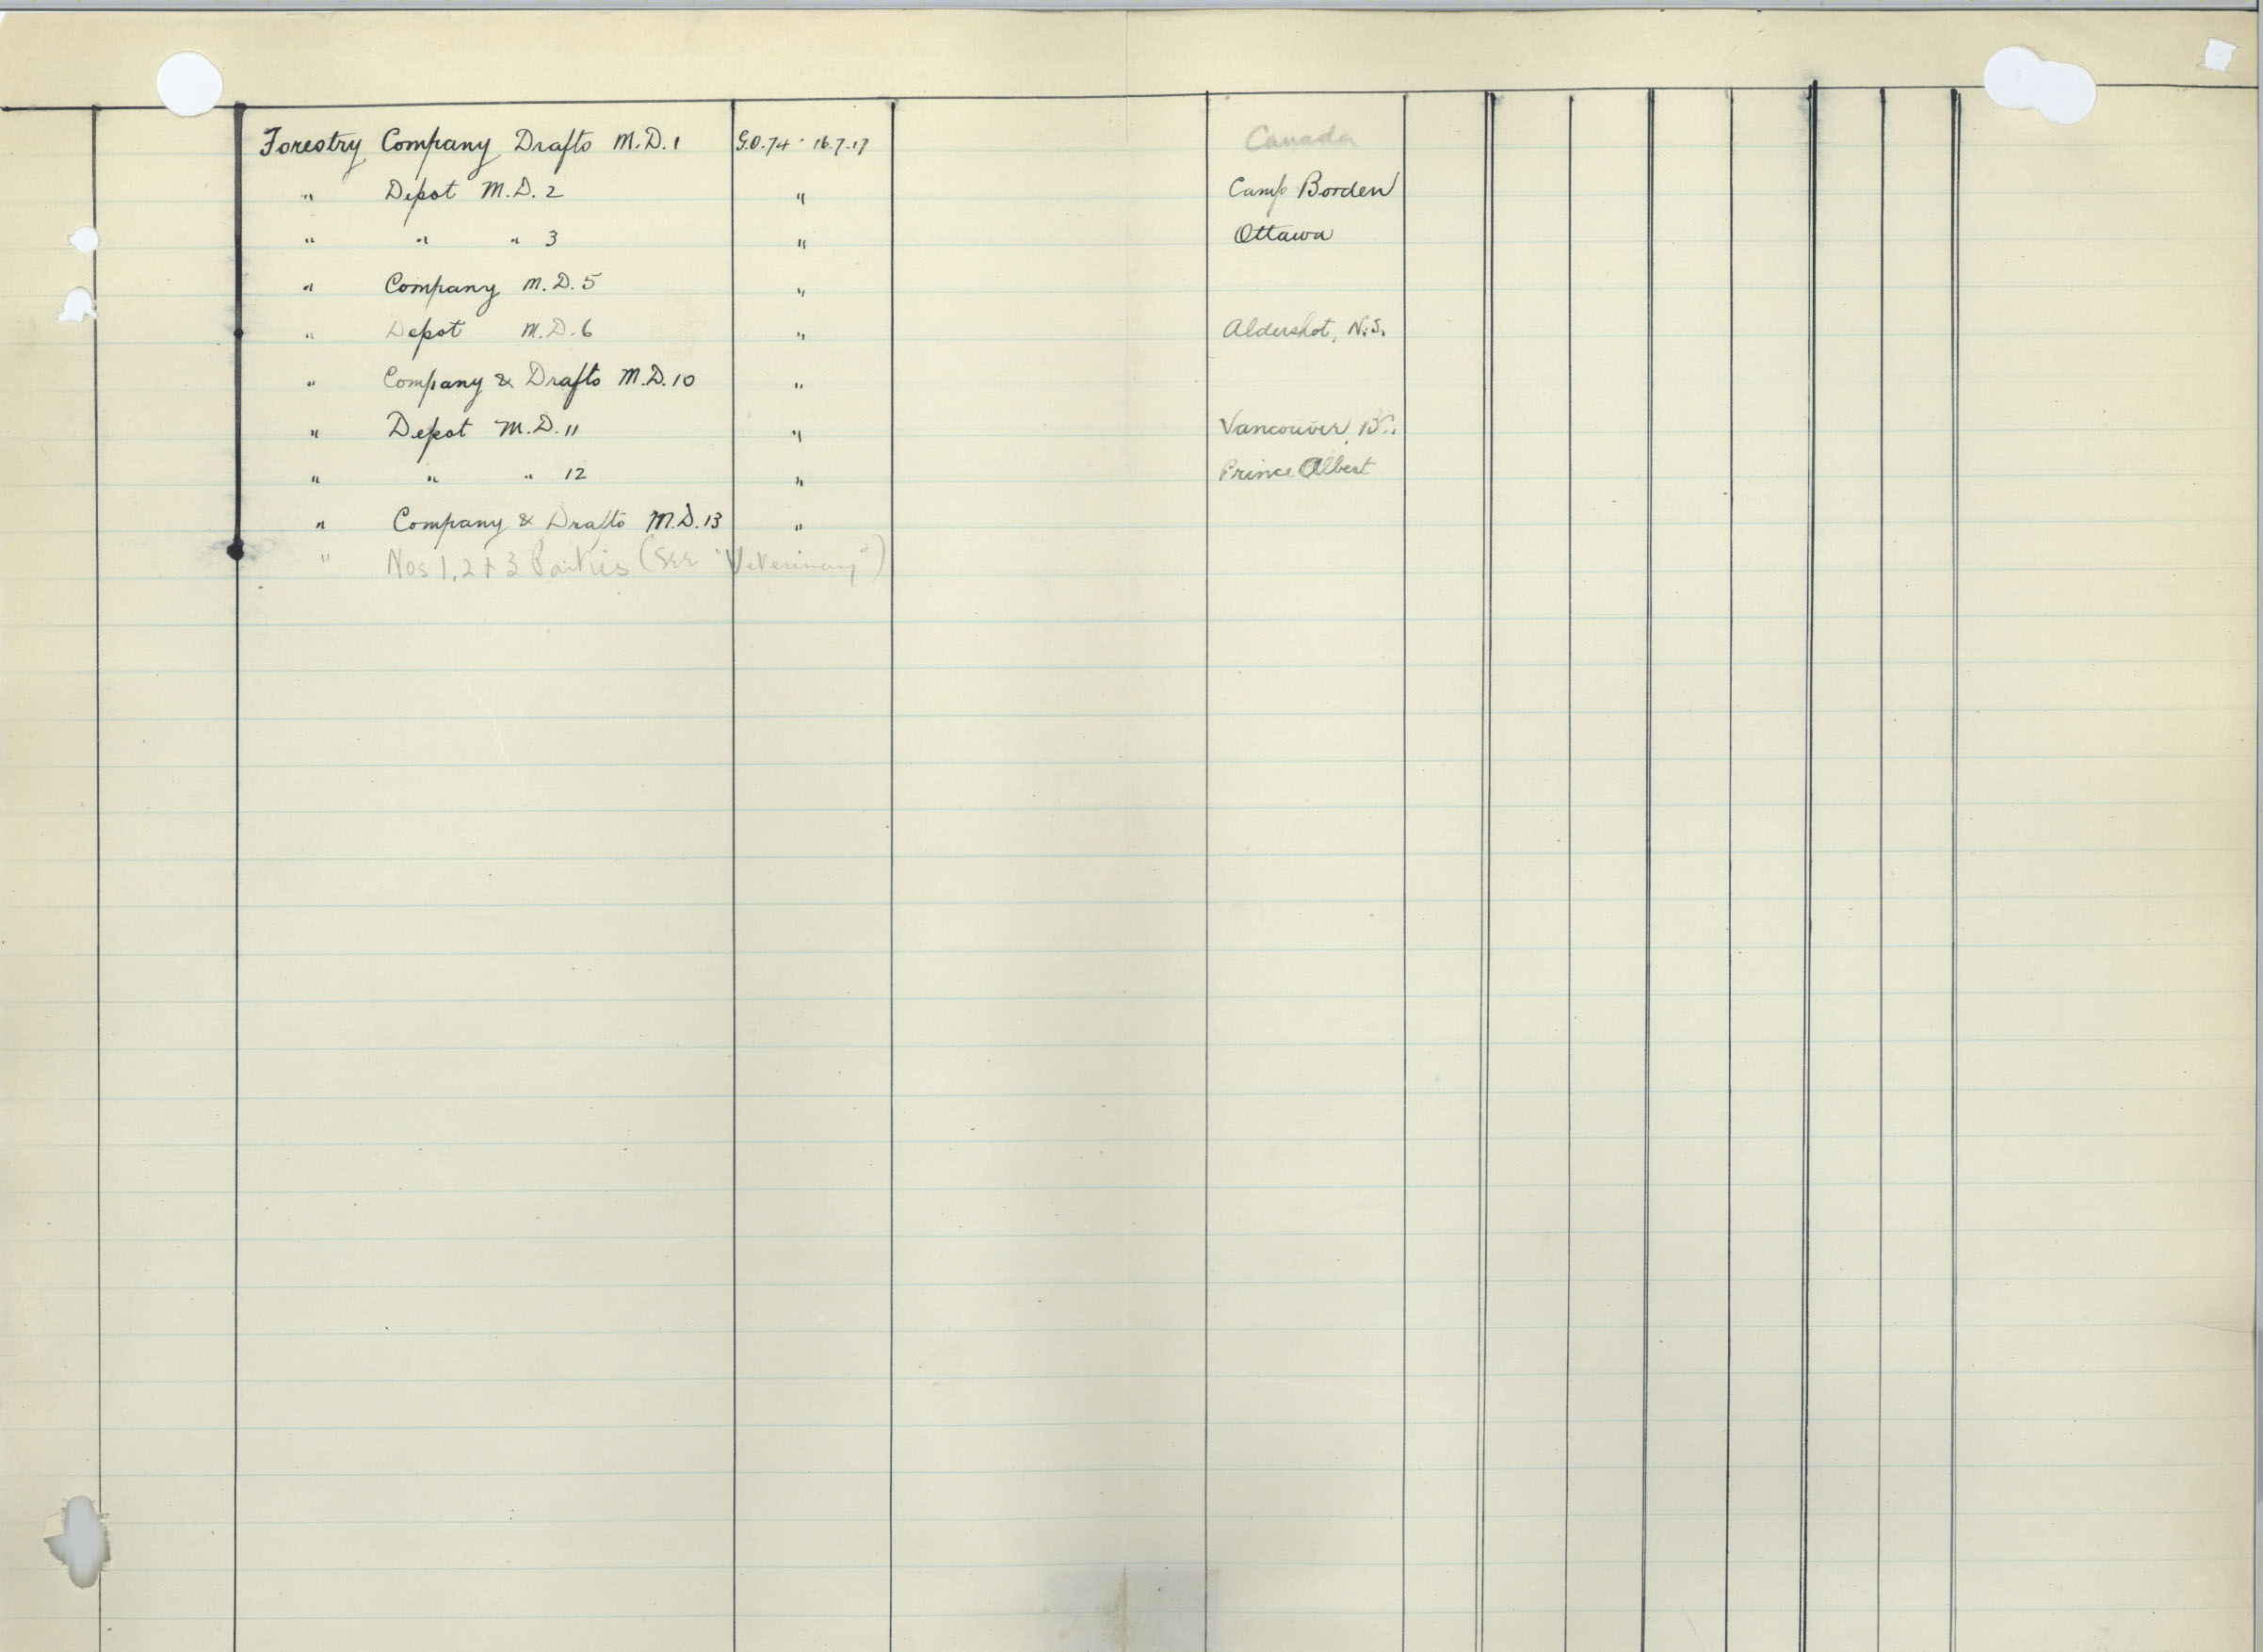 Forestry Company Drafts M.D.1 G.O.74 · 16.7.17 Canada
" Depot M.D.2 " Camp Borden
" " " 3 " Ottawa
" Company M.D.5 "
" Depot M.D.6 " Aldershot, N.S.
" Company & Drafts M.D.10 "
" Depot M.D.11 " Vancouver, B.C.
" " " 12 " Prince Albert
" Company & Drafts M.D.13 "
" Nos 1, 2 + 3 Parties (See "Veterinary")